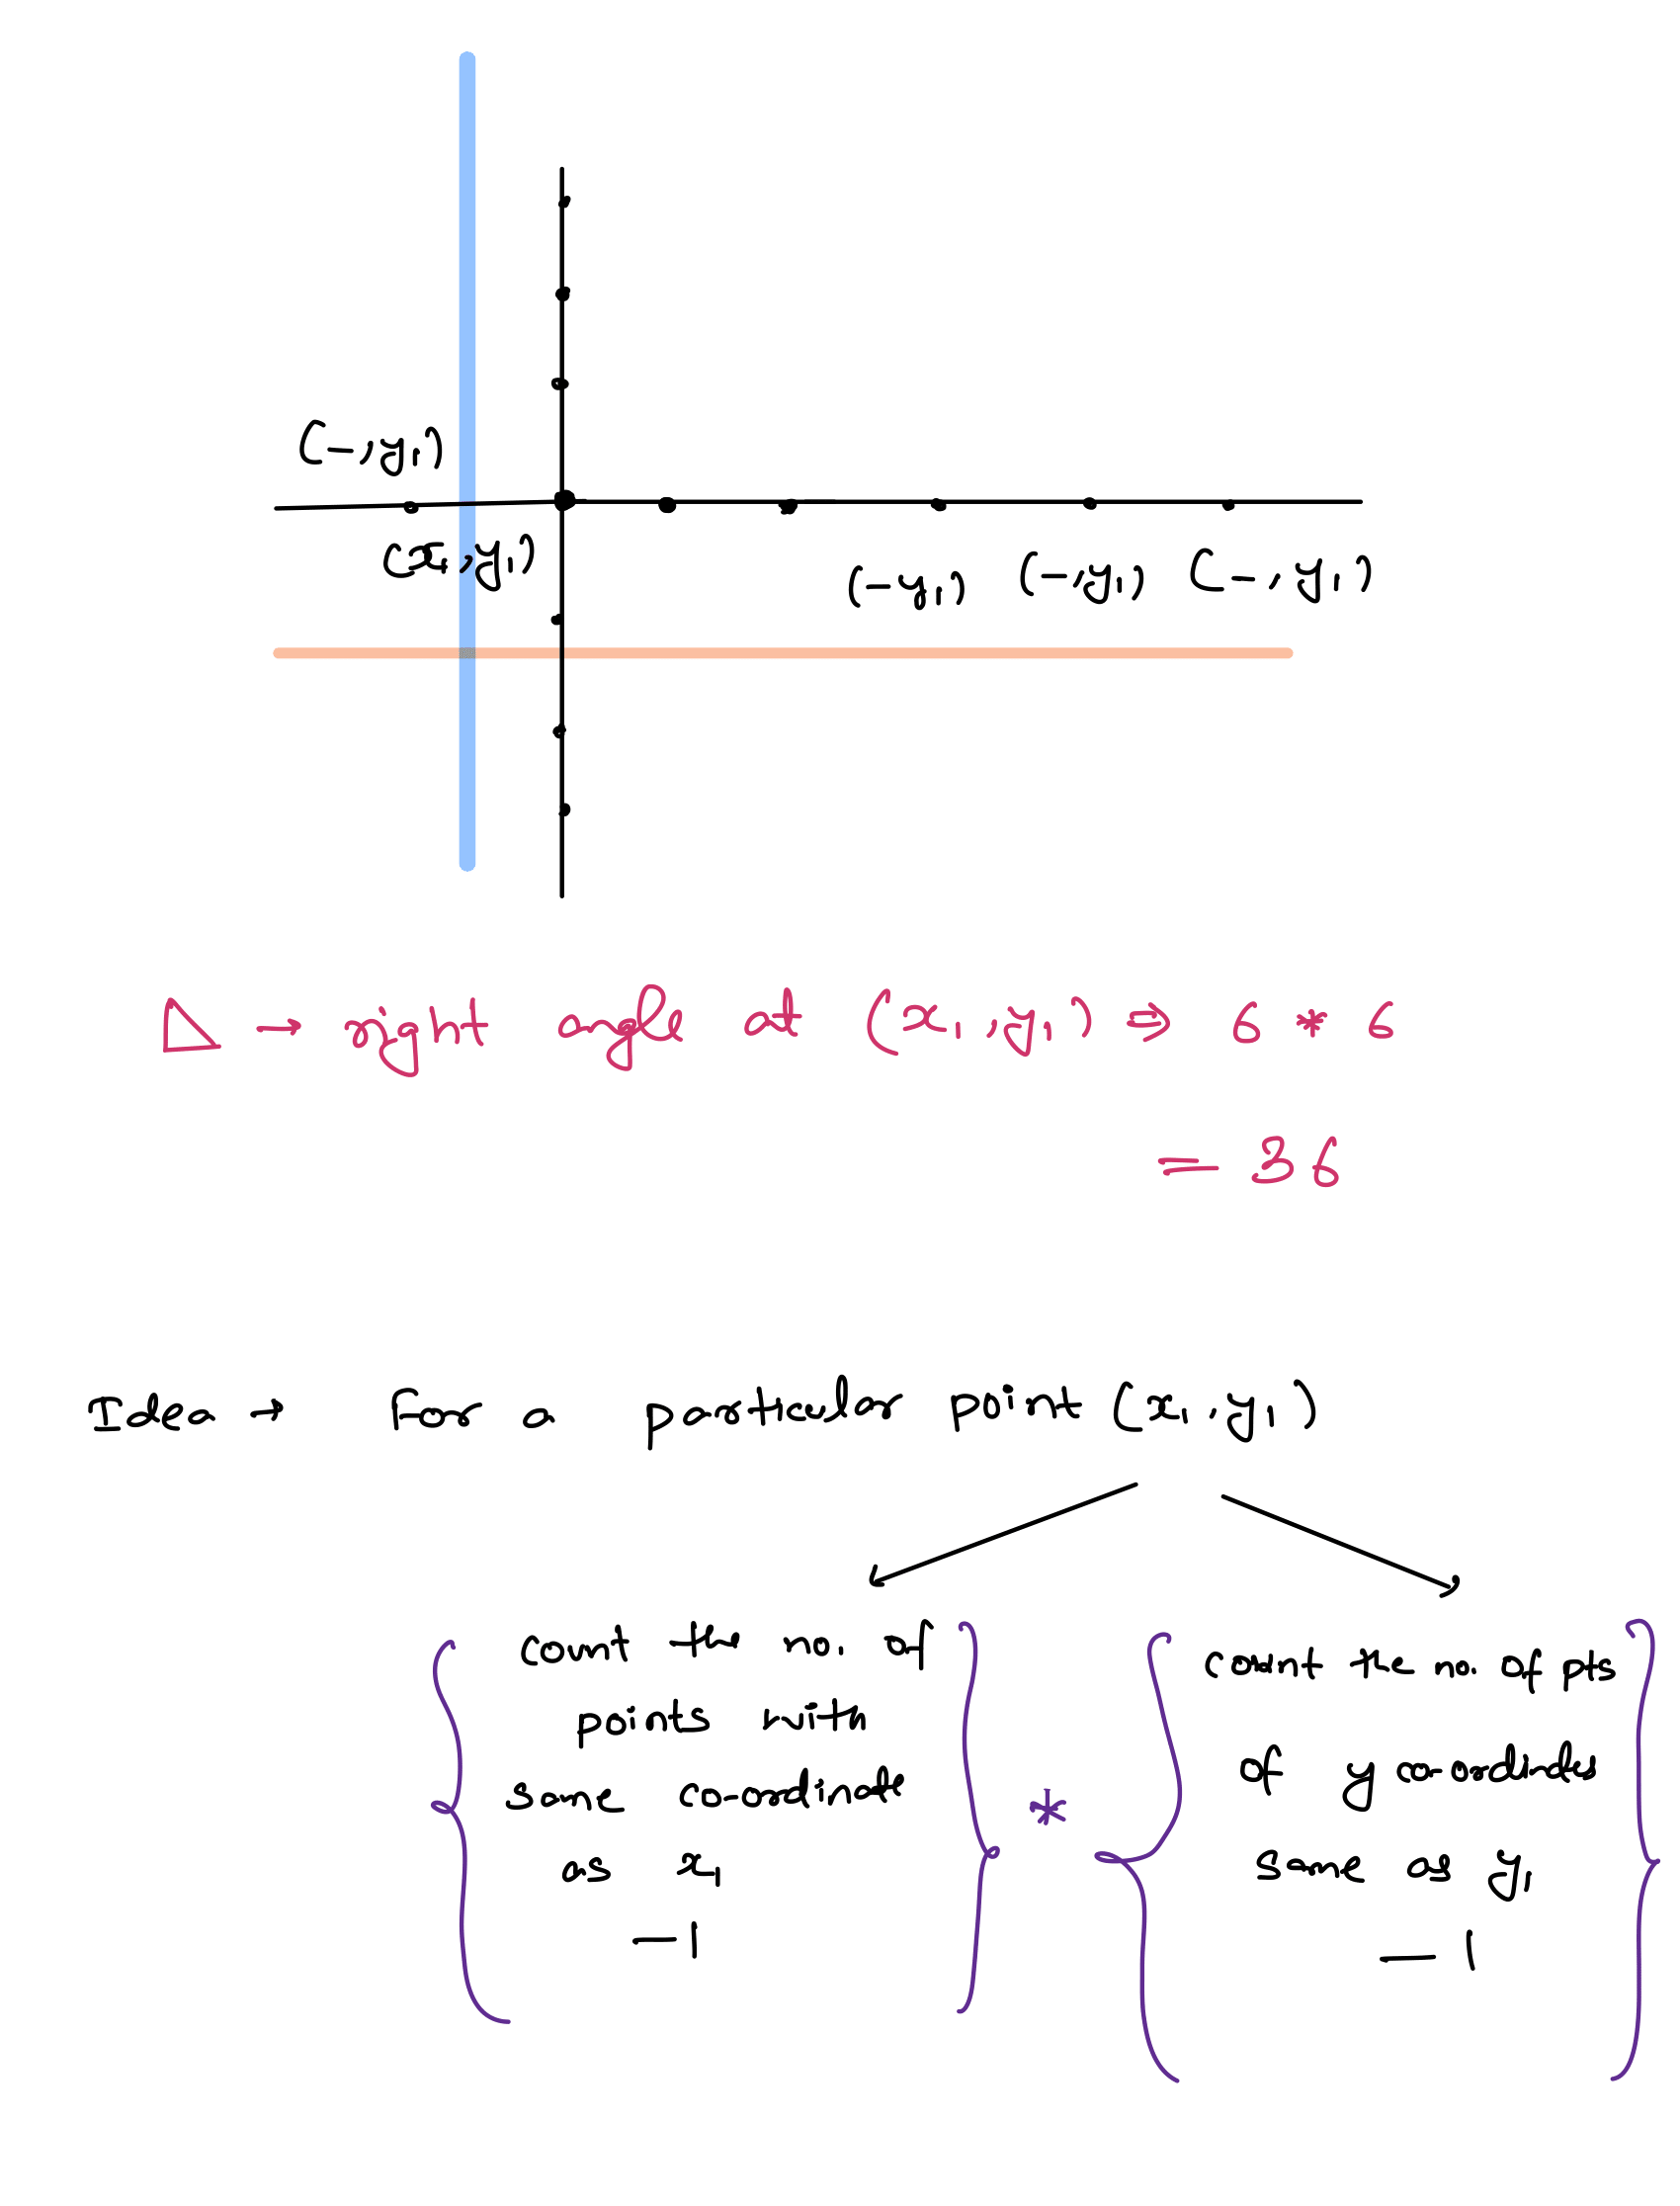 (-,y₁)
(x₁,y₁)
(-y₁) (-,y₁) (-,y₁)
△ → right agle at (x₁,y₁) ⇒ 6 * 6
= 36
Idea → For a particular point (x₁,y₁)
count the no. of
points with
same co-ordinate
as x₁
-1
*
count the no. of pts
of y co-ordinates
same as y₁
-1